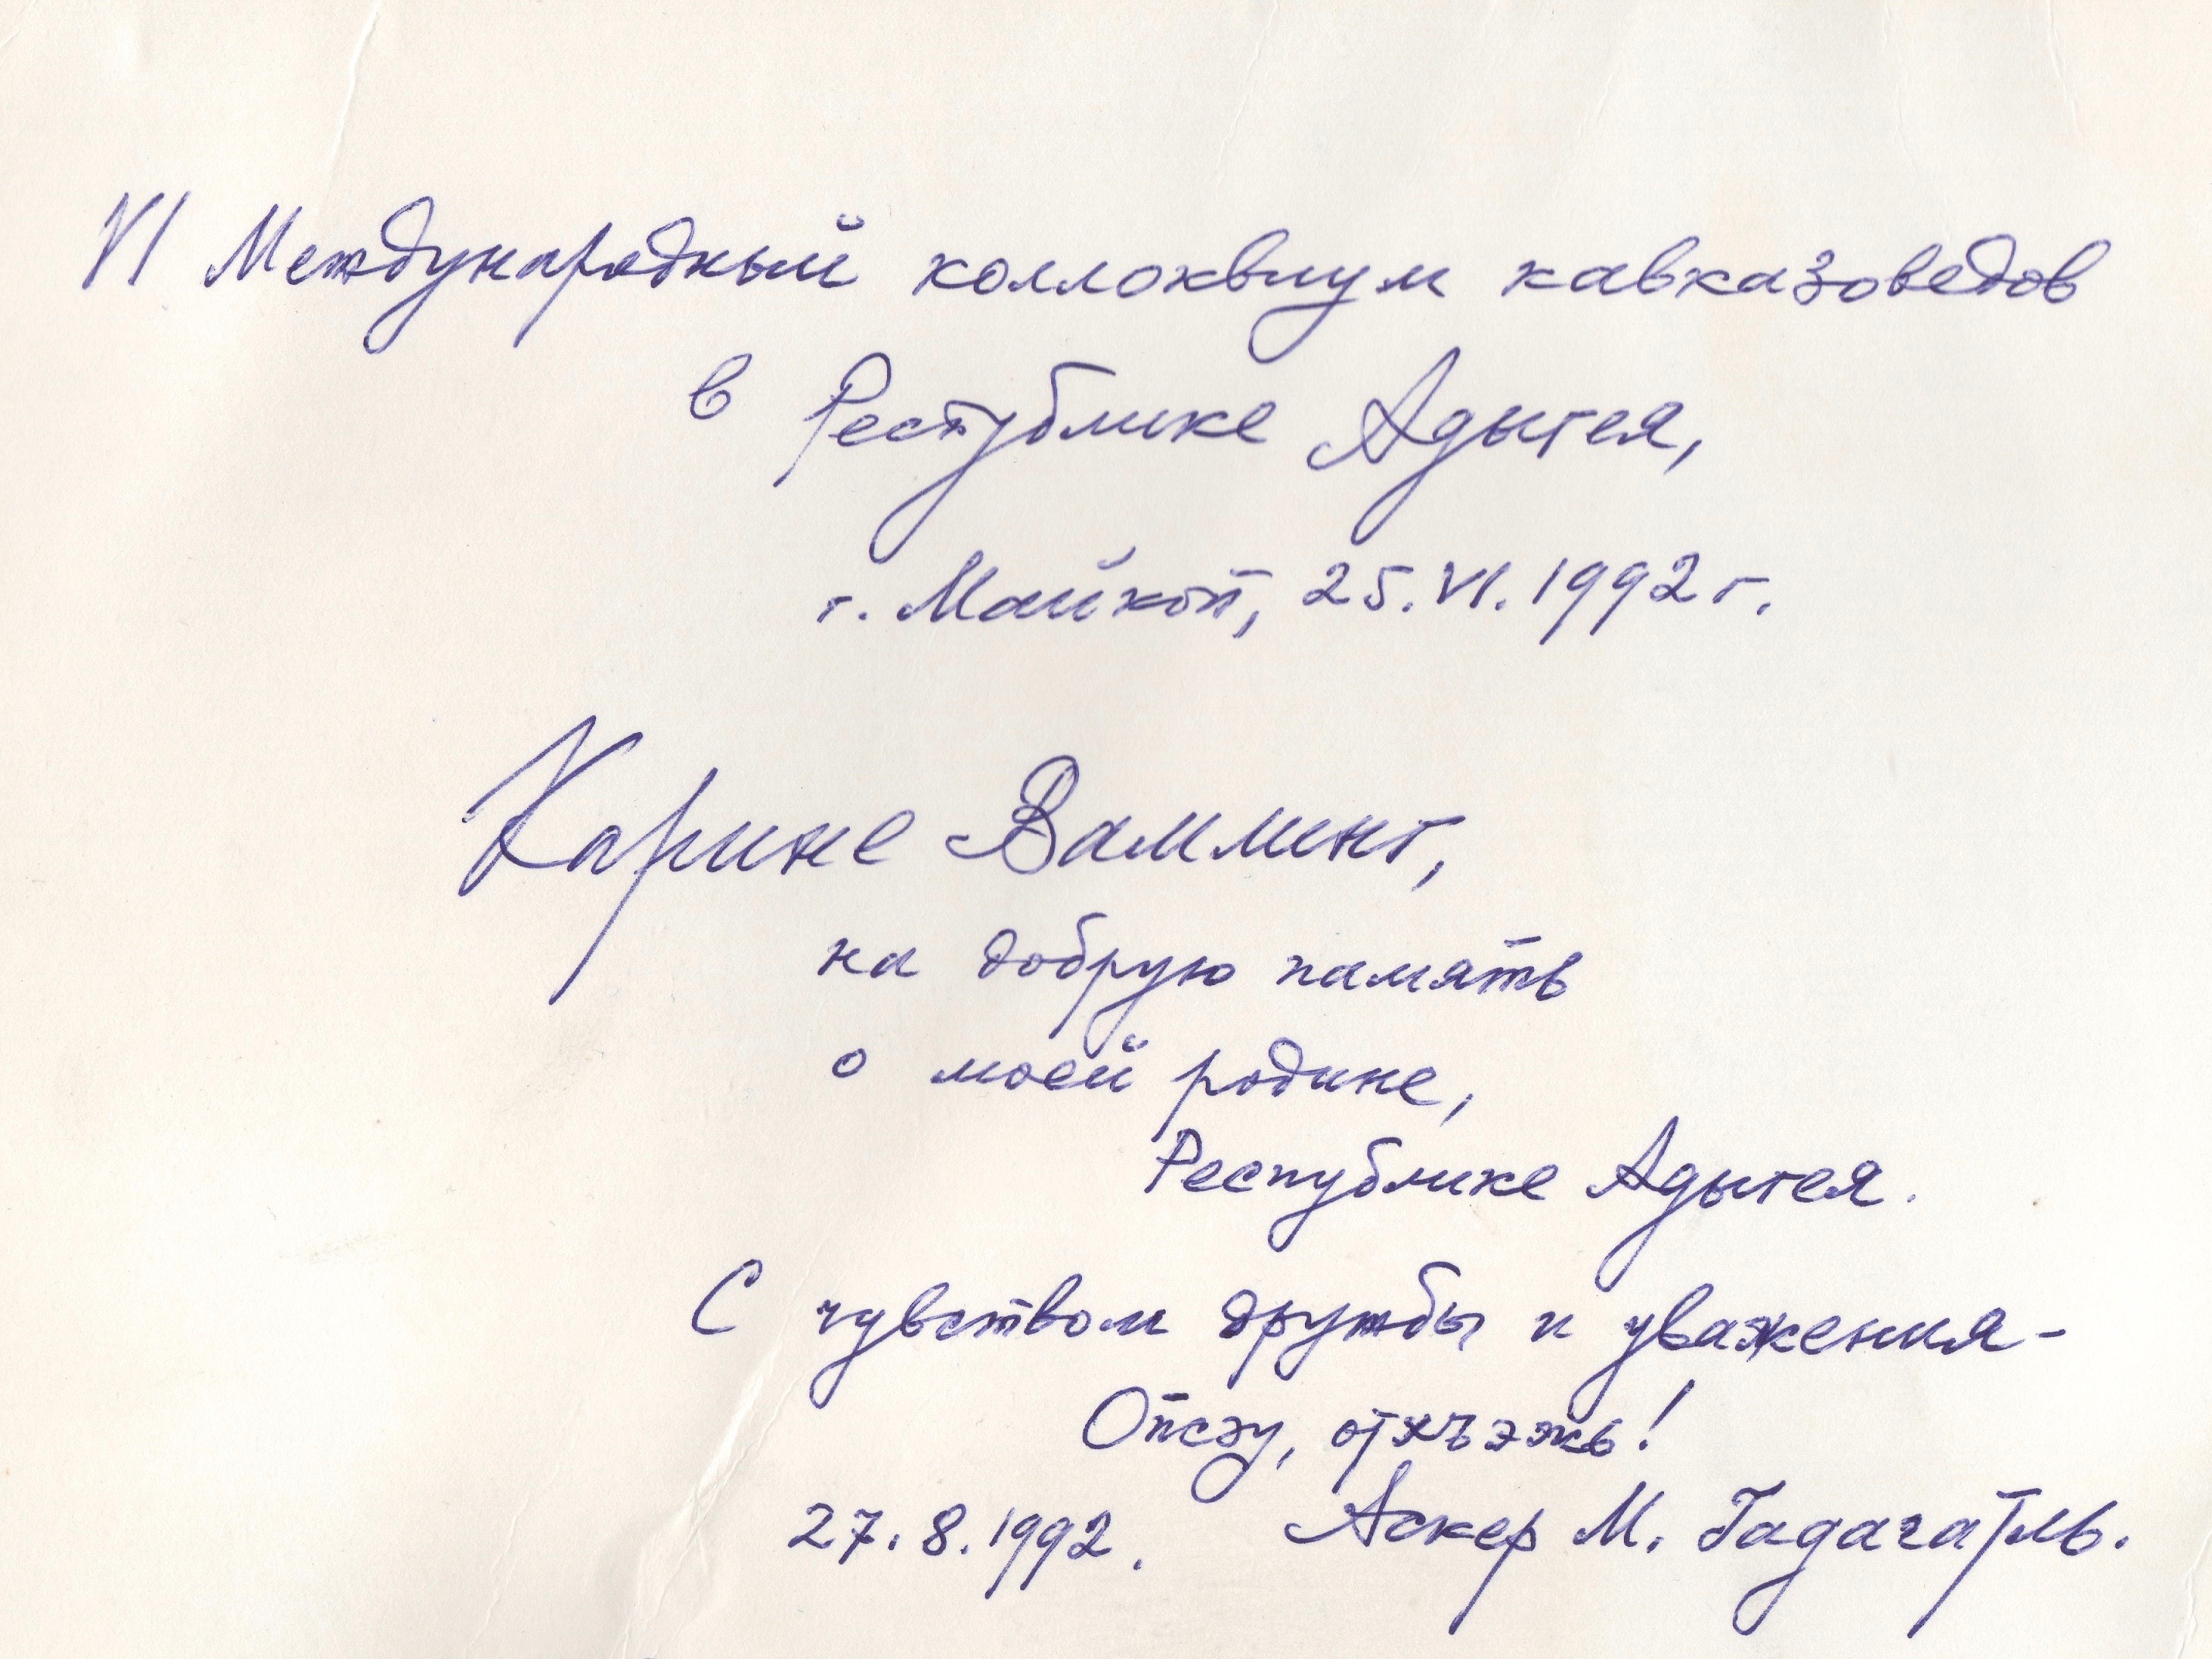 VI Международный коллоквиум кавказоведов
в Республике Адыгея,
г. Майкоп, 25.VI.1992 г.
Карине Вамлинг,
на добрую память
о моей родине,
Республике Адыгея.
С чувством дружбы и уважения-
Опсэу,
27.8.1992. Аскер М. Гадагатль.